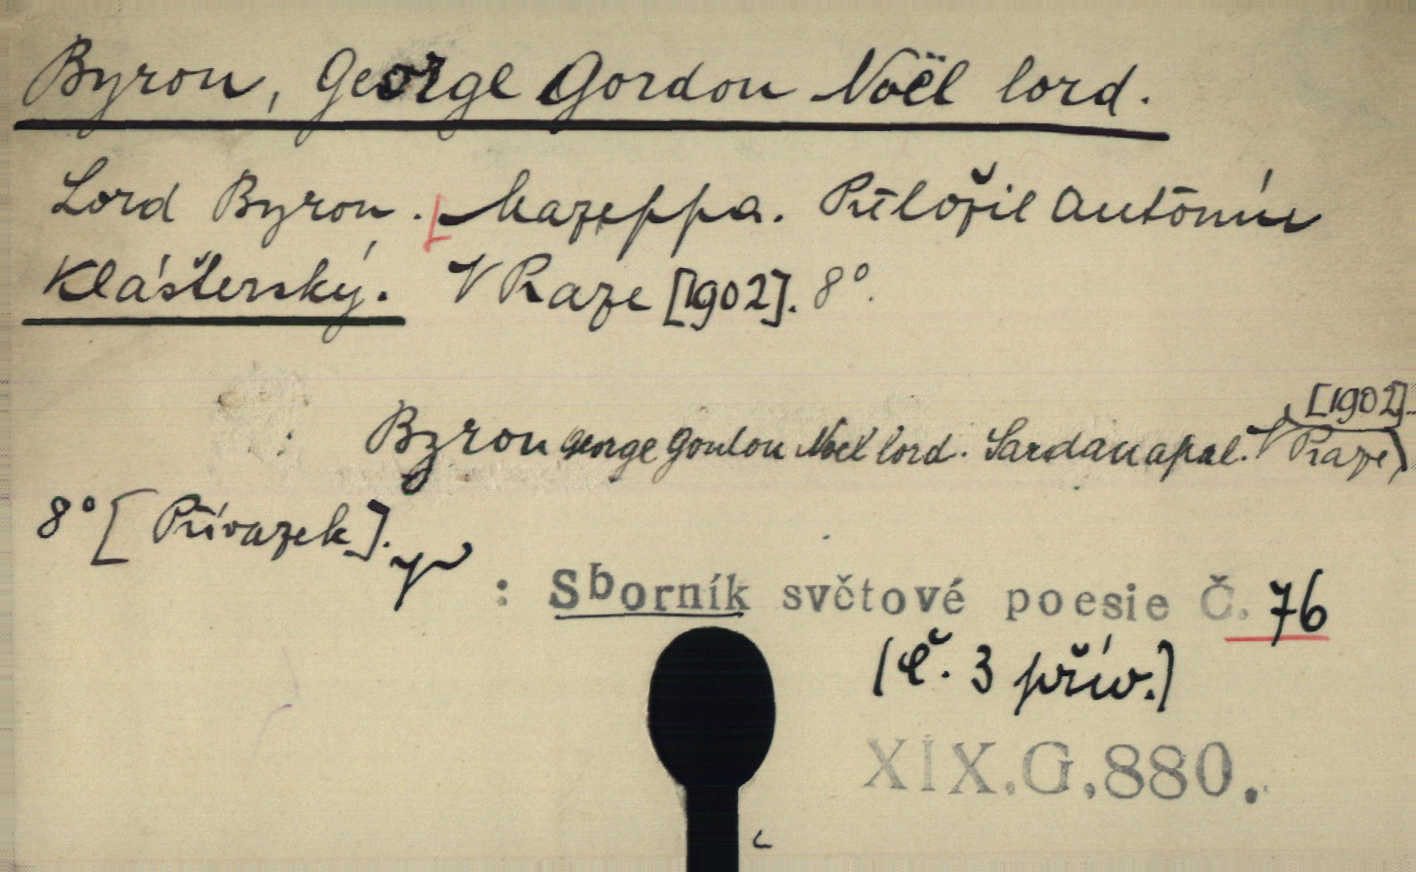 Byron, George Gordon Noël lord.
Lord Byron. Mazeppa. Přeložil Antonín
Klášterský. V Praze [1902]. 8°.
[1902].
Byron George Gordon Noel lord. Sardanapal. V Praze,
8° [Přívazek].
: Sborník světové poesie Č. 76
(č. 3 přív.)
XIX.G.880.